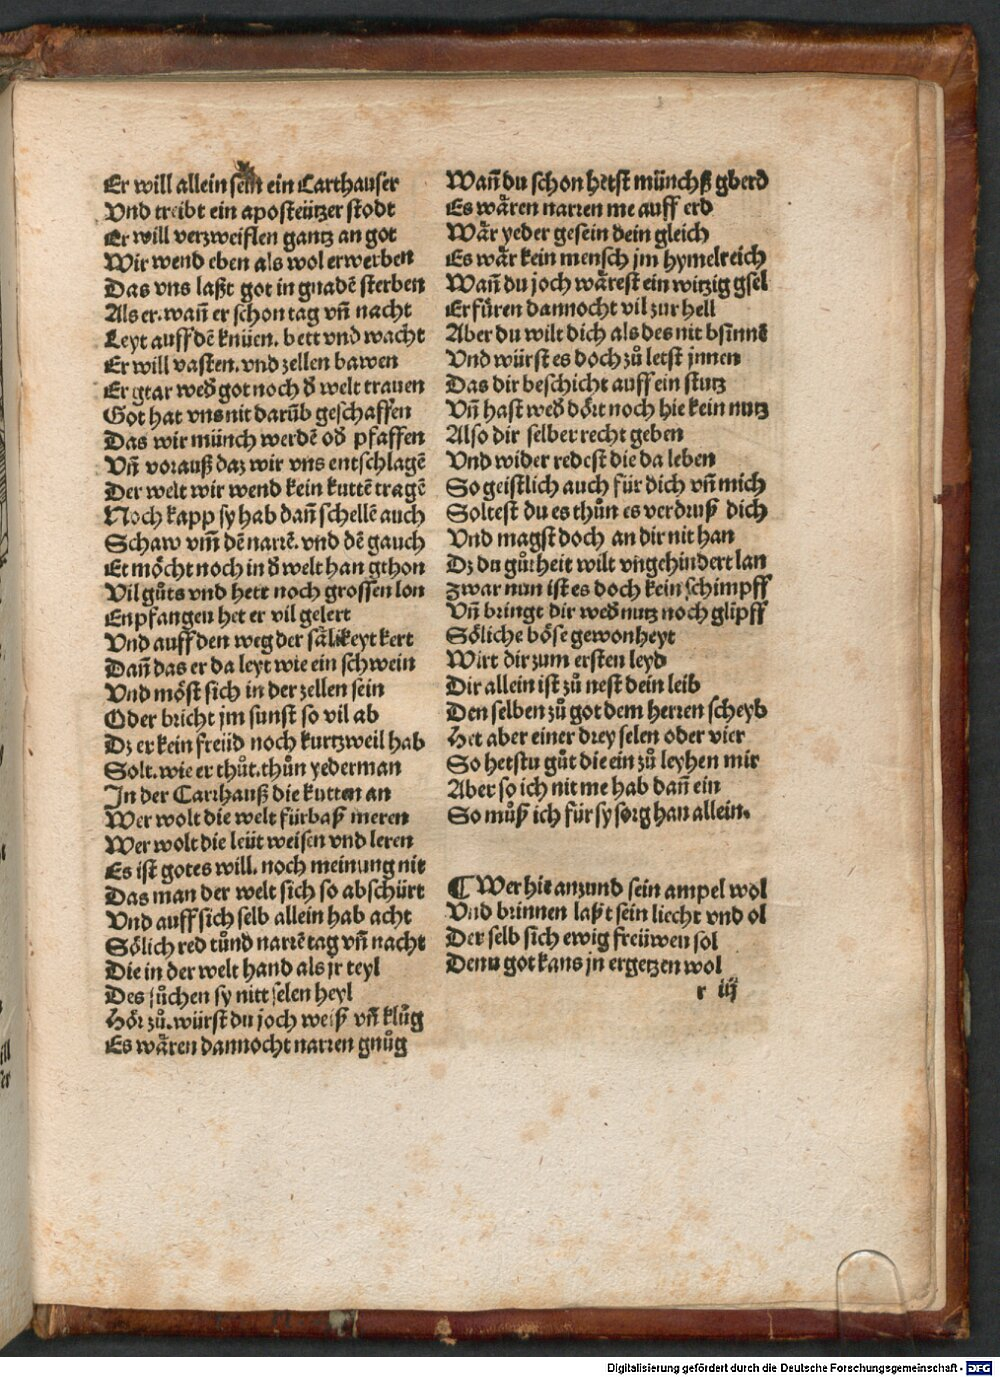 Er will allein sein ein Carthauser
Vnd treibt ein aposteützer stodt
Er will verzweiflen gantz an got
Wir wend eben als wol erwerben
Das vns laßt got in gnadẽ sterben
Als er. wañ er schon tag vñ nacht
Leyt auff dẽ knüen. bett vnd wacht
Er will vasten. vnd zellen bawen
Er gtar wed̕ got noch d̕ welt trauen
Got hat vns nit darũb geschaffen
Das wir münch werdẽ od̕ pfaffen
Vñ vorauß daz wir vns entschlagẽ
Der welt wir wend kein kuttẽ tragẽ
Noch kapp sy hab dañ schellẽ auch
Schaw vm̃ dẽ narrẽ. vnd dẽ gauch
Et möcht noch in d̕ welt han gthon
Vil gůts vnd hett noch grossen lon
Enpfangen het er vil gelert
Vnd auff den weg der sälikeyt kert
Dañ das er da leyt wie ein schwein
Vnd möst sich in der zellen sein
Oder bricht jm sunst so vil ab
Dz er kein freüd noch kurtzweil hab
Solt. wie er thůt. thůn yederman
In der Carthauß die kutten an
Wer wolt die welt fürbaß meren
Wer wolt die leüt weisen vnd leren
Es ist gotes will. noch meinung nit
Das man der welt sich so abschürt
Vnd auff sich selb allein hab acht
Sölich red tůnd narrẽ tag vñ nacht
Die in der welt hand als jr teyl
Des sůchen sy nitt selen heyl
Hör zů. würst du joch weiß vñ klůg
Es wären dannocht narren gnůg
Wañ du schon hetst münchß gberd
Es wären narren me auff erd
Wär yeder gesein dein gleich
Es wär kein mensch jm hymelreich
Wañ du joch wärest ein witzig gsel
Er füren dannocht vil zur hell
Aber du wilt dich als des nit bsinnẽ
Vnd würst es doch zů letst jnnen
Das dir beschicht auff ein stutz
Vñ hast wed̕ dört noch hie kein nutz
Also dir selber recht geben
Vnd wider redest die da leben
So geistlich auch für dich vñ mich
Soltest du es thůn es verdruß dich
Vnd magst doch an dir nit han
Dz du gůtheit wilt vngehindert lan
zwar nun ist es doch kein schimpff
Vñ bringt dir wed̕ nutz noch glipff
Söliche böse gewonheyt
Wirt dir zum ersten leyd
Dir allein ist zů nest dein leib
Den selben zů got dem herren scheyb
Het aber einer drey selen oder vier
So hetstu gůt die ein zů leyhen mir
Aber so ich nit me hab dañ ein
So můß ich für sy sorg han allein.
¶ Wer hie anzund sein ampel wol
Vnd brinnen laßt sein liecht vnd ol
Der selb sich ewig freüwen sol
Denn got kans jn ergetzen wol
r iij
Digitalisierung gefördert durch die Deutsche Forschungsgemeinschaft - DFG